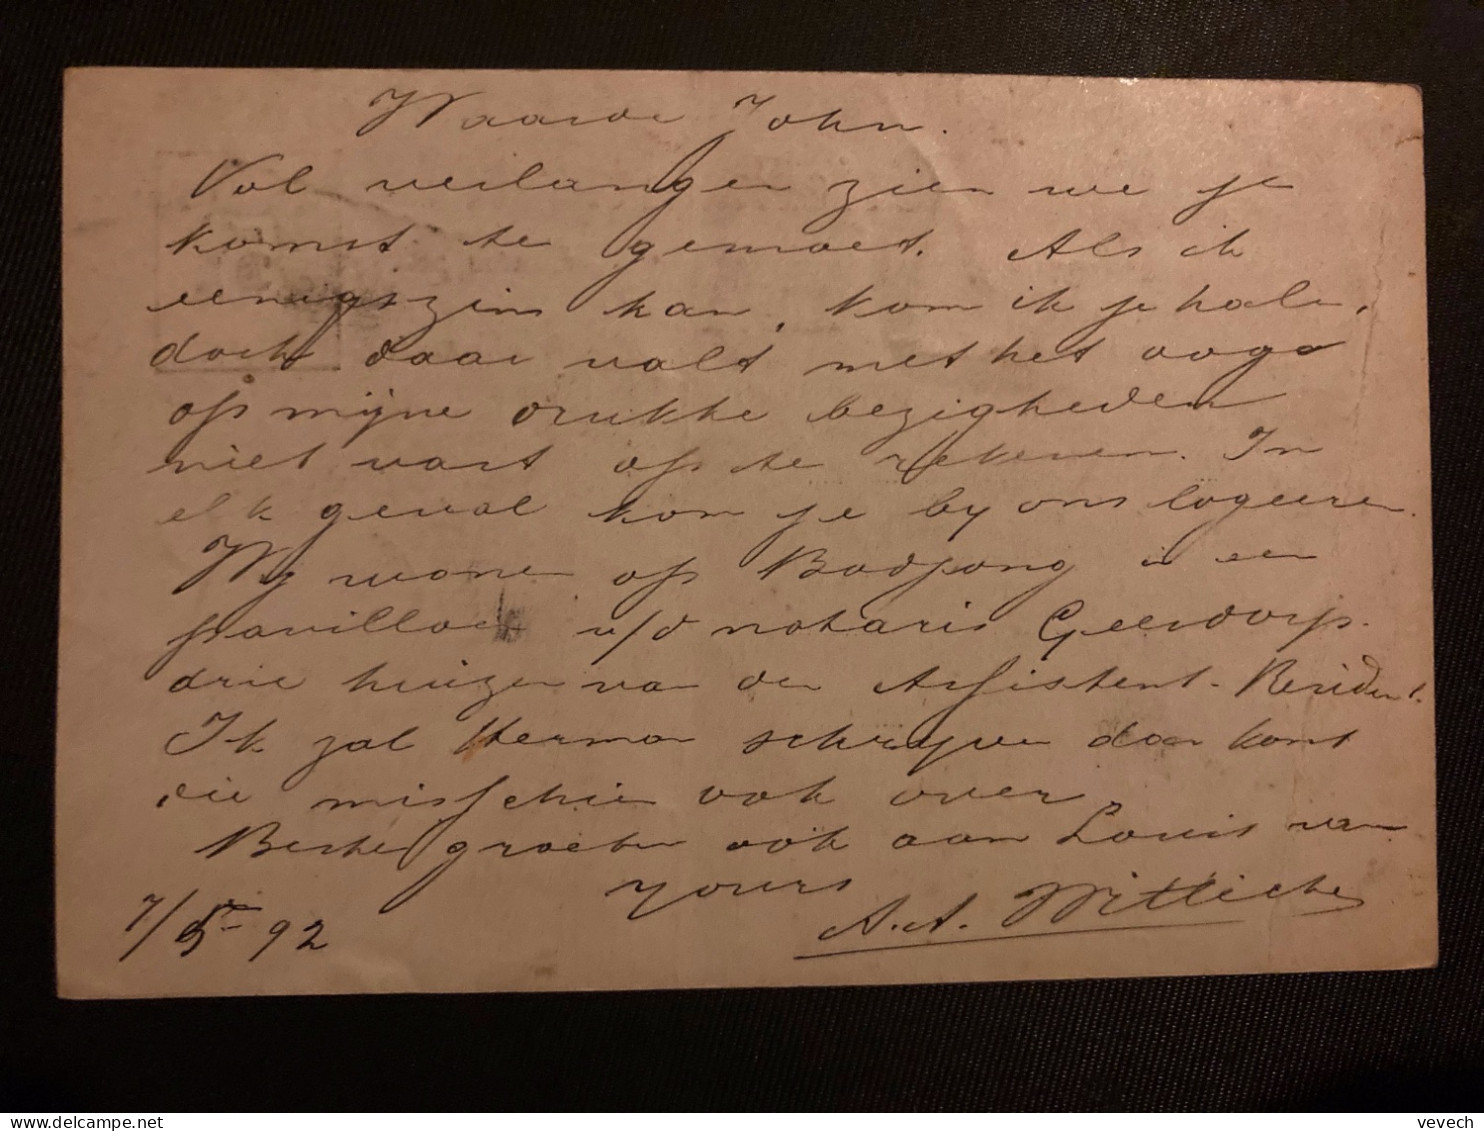 Waarde John.
Vol verlangen zien we je
komst te gemoet. Als ik
eenigszins kan, kom ik je halen,
doch daar valt met het oog
op mijne drukke bezigheden
niet vast op te rekenen. In
elk geval kom je by ons logeeren.
Wy wonen op Bodjong in een
pavilloen v/d notaris Geesdorp.
drie huizen van den Assistent-Resident.
Ik zal Herman schryven dan komt
die misschien ook over.
Beste groeten ook aan Louis van
yours
A.A. Wittich
7/5 92
vevech